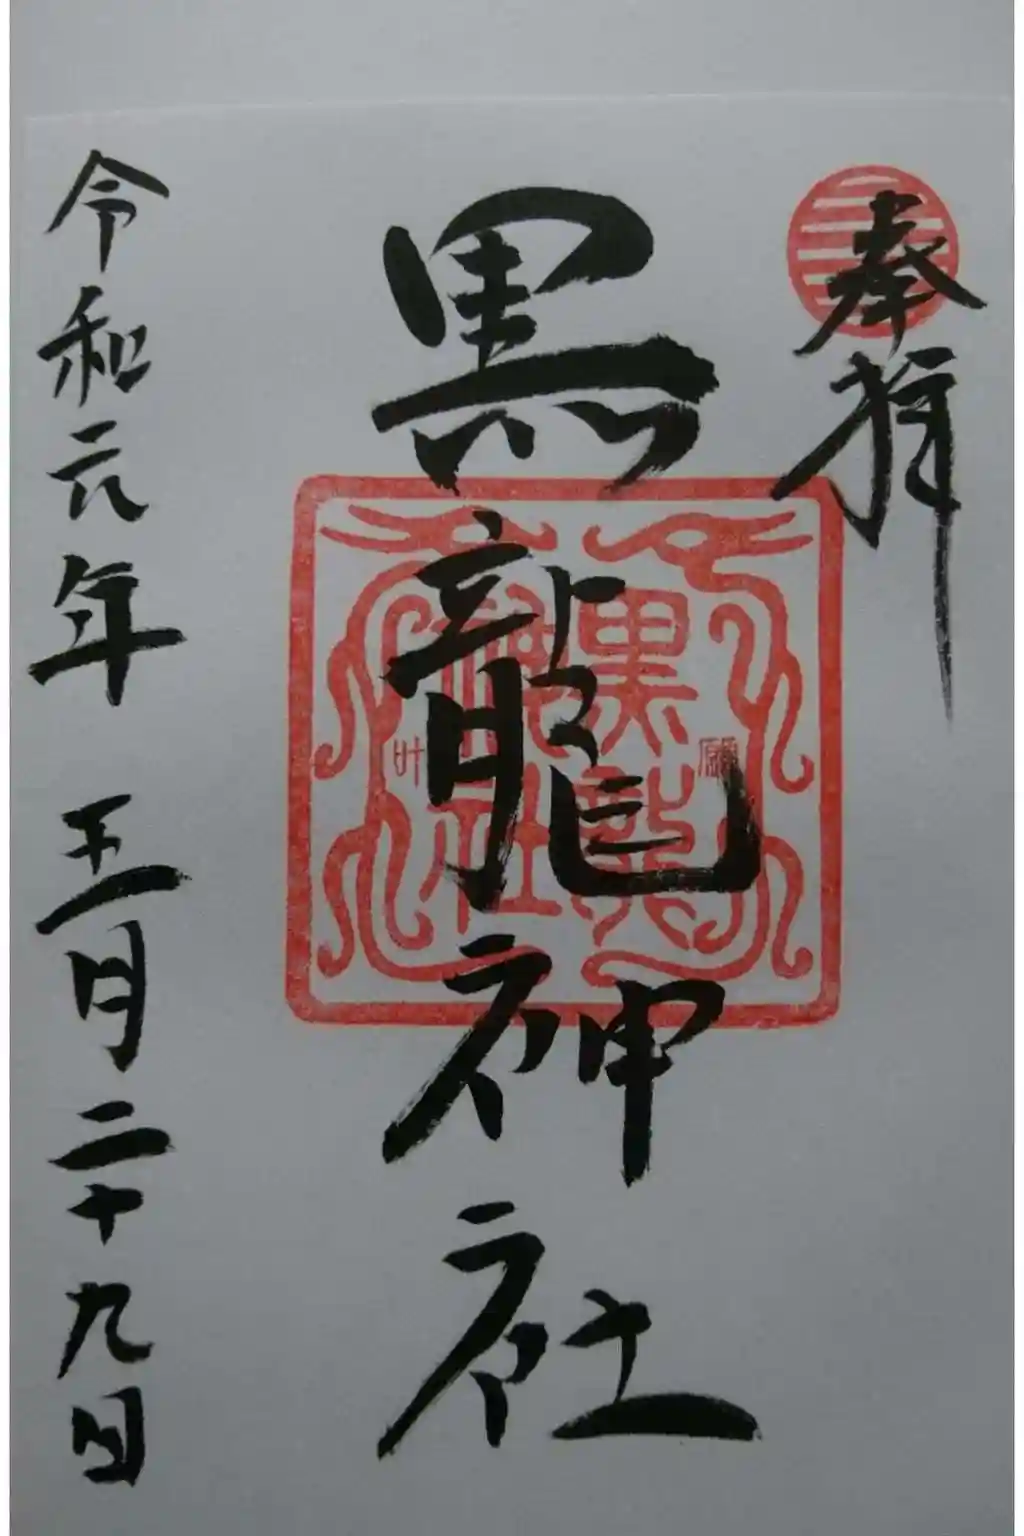 奉拝
黒龍神社
黒龍
神社
願
叶
令和元年 五月二十九日